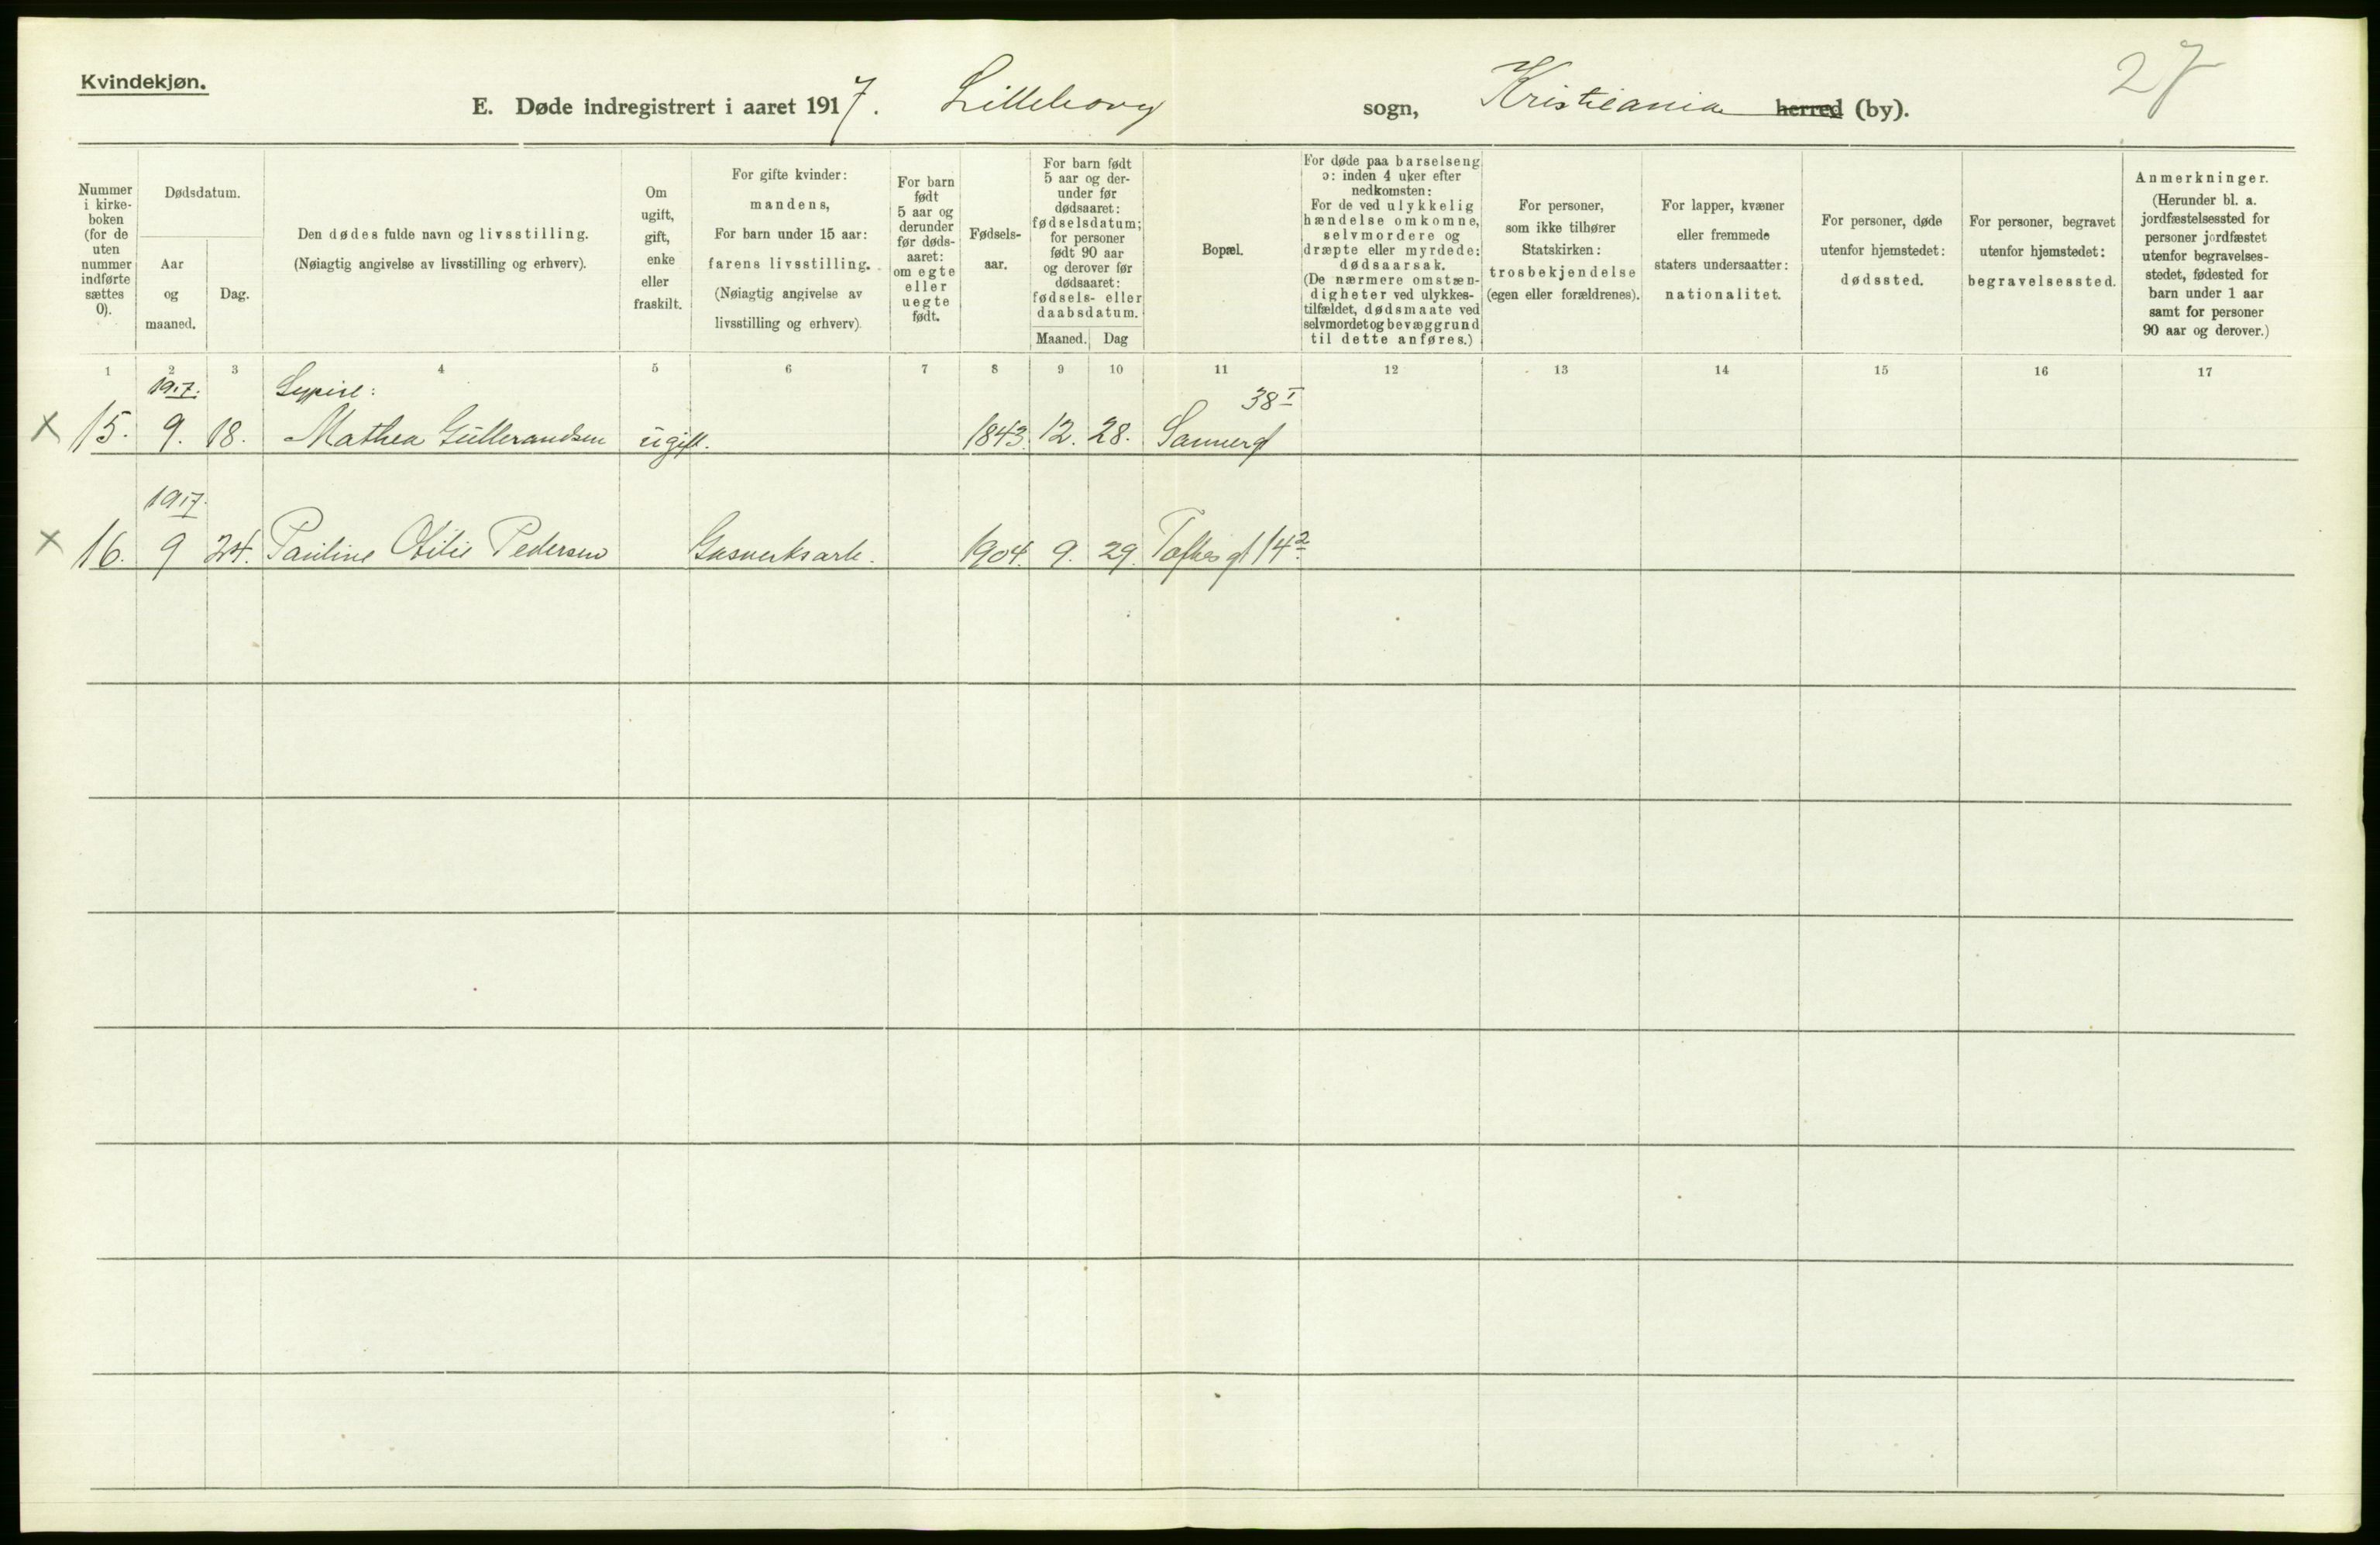 Kvindekjøn.
27
E. Døde indregistrert i aaret 1917. Lilleborg sogn, Kristiania herred (by).
Nummer i kirke-boken (for de uten nummer indførte sættes 0).
Dødsdatum.
Aar og maaned.
Dag.
Den dødes fulde navn og livsstilling.
(Nøiagtig angivelse av livsstilling og erhverv).
Om ugift, gift, enke eller fraskilt.
For gifte kvinder: mandens,
For barn under 15 aar: farens livsstilling.
(Nøiagtig angivelse av livsstilling og erhverv).
For barn født 5 aar og derunder før døds-aaret: om egte eller uegte født.
Fødsels-aar.
For barn født 5 aar og der-under før dødsaaret: fødselsdatum; for personer født 90 aar og derover før dødsaaret: fødsels- eller daabsdatum.
Maaned. Dag
Bopæl.
For døde paa barselseng ɔ: inden 4 uker efter nedkomsten:
For de ved ulykkelig hændelse omkomne, selvmordere og dræpte eller myrdede: dødsaarsak.
(De nærmere omstæn-digheter ved ulykkes-tilfældet, dødsmaate ved selvmordet og bevæggrund til dette anføres.)
For personer, som ikke tilhører Statskirken: trosbekjendelse (egen eller forældrenes).
For lapper, kvæner eller fremmede staters undersaatter: nationalitet.
For personer, døde utenfor hjemstedet: dødssted.
For personer, begravet utenfor hjemstedet: begravelsessted.
Anmerkninger.
(Herunder bl. a. jordfæstelsessted for personer jordfæstet utenfor begravelses-stedet, fødested for barn under 1 aar samt for personer 90 aar og derover.)
1 2 3 4 5 6 7 8 9 10 11 12 13 14 15 16 17
1917. 38 I
x 15. 9. 18. Mathea Gullerandsen ugift. 1843. 12. 28. Sannergt
1917.
x 16. 9 24. Pauline Otilie Pedersen Gasverksarb. 1904. 9. 29. Toftesgt 14 2